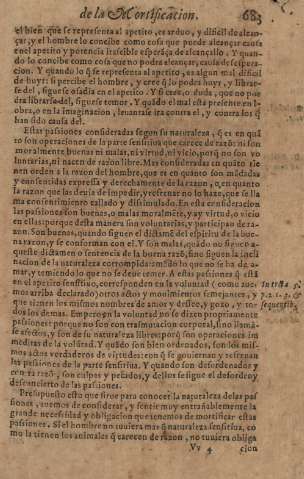 de la Mortificacion. 683
el bien que se representa al apetito, es arduo, y dificil de alcan-
çar, y el hombre lo concibe como cosa que puede alcançar causa
en el apetito y potencia irascible esperãça de alcançallo. Y quan-
do lo concibe como cosa que no podra alcançar, causa deespera-
cion. Y quando lo q̃ se representa al apetito, es algun mal dificil
de huyr: si percibe el hombre, y cree q̃ lo podra huyr, y librar-
se del, sigue se osadia en el apetito. Y si cree, o duda, que no po-
dra librarse del, sigue se temor. Y quãdo el mal esta presente en
obra, o en la imaginacion, leuantase ira contra el, y contra los q̃
han sido causa del.
Estas passiones consideradas segun su naturaleza, q̃ es en quã
to son operaciones de la parte sensitiua que carece de razõ: ni son
moralmente buenas ni malas, ni virtud, ni vicio, porq̃ no son vo
luntarias, ni nacen de razon libre. Mas consideradas en quãto tie
nen orden a la razon del hombre, que es en quanto son mãdadas
y consentidas expressa y derechamente de la razon, o en quanto
la razon que las deuia de impedir, y refrenar no lo haze, que se lla
ma consentimiento callado y dissimulado. En esta consideracion
las passiones son buenas, o malas moralmẽte, y ay virtud, o vicio
en ellas: porque desta manera son voluntarias, y participan de ra-
zon. Son buenas, quando siguen el dictamẽ del espiritu de la bue-
na razon, y se conforman con el. Y son malas, quãdo no siguen a-
queste dictamen o sentencia de la buena razõ, sino siguen la incli
nacion de la naturaleza corrompida: amãdo lo que no se ha de a-
mar, y temiendo lo que no se deue temer. A estas passiones q̃ està
en el apetito sensitiuo, corresponden en la voluntad (como aue-
mos arriba declarado) otros actos y mouimientos semejantes, y
que tienen los mismos nombre de amor y desseo, y gozo, y to-
dos los demas. Empero en la voluntad no se dizen propriamente
passiones: porque no son con trasmutacion corporal, sino llamã-
se afectos, y son de su naturaleza libres: porq̃ son operaciones in
mediatas de la volũtad. Y quãdo son bien ordenados, son los mis-
mos actos verdaderos de virtudes: con q̃ se gouiernan y refrenan
las passiones de la parte sensitiua. Y quando son desordenados y
con-tra razõ, son culpas y pecados, y dellos se sigue el desorden y
desconcierto de las passiones.
Presupuesto esto que sirue para conocer la naturaleza de las pas
siones, auemos de considerar, y sentir muy entrañablemente la
grande necessidad y obligacion que tenemos de mortificar estas
passiones. Si el hombre no tuuiera mas q̃ naturaleza sensitiua, co
mo la tienen los animales q̃ carecen de razon, no tuuiera obliga
Vv 4 cion